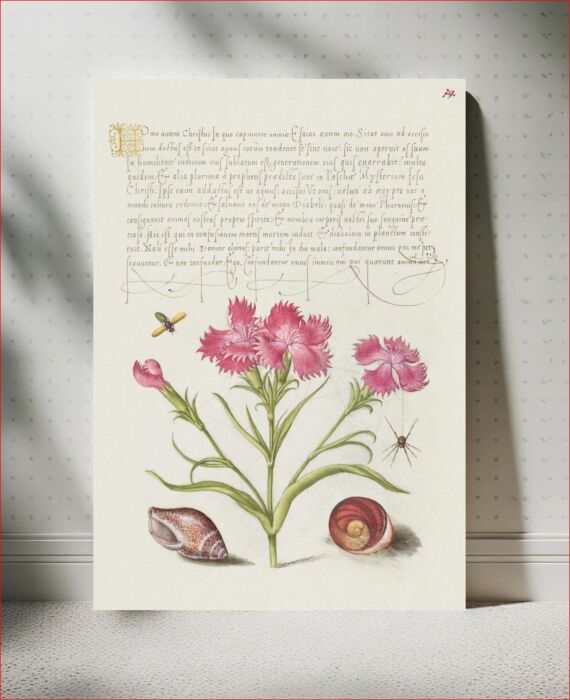 79.
Homo autem Christus In quo capiuntur omnia: Esaias autem ait: Sicut ouis ad occisio
nem ductus est et sicut agnus coram tondente se sine uoce: sic non aperuit os suum
In humilitate iudicium eius sublatum est: generationem eius quis enarrabit, multa
quidem, & alia plurima a prophetis praedicta sunt in Paschae Mysterium Iesu
Christi. Ipse enim adductus est ut agnus: occisus Vt ouis: ueluti ab aegypto nos a
mundi cultura redemit: & saluauit nos de manu Diaboli, quasi de manu Pharaonis: &
consignauit animas nostras proprio spiritu: & membra corporis nostri suo sanguine prae
cioso. Hic est qui in confusionem mortis mortem induit, & diabolum in planctum consti
tuit. Non esse mihi Domine alienus: parce mihi In die mala: confundantur omnes qui me pers
equuntur, & non confundar, Ego. Confundantur omnes inimici mei qui quaerunt animam